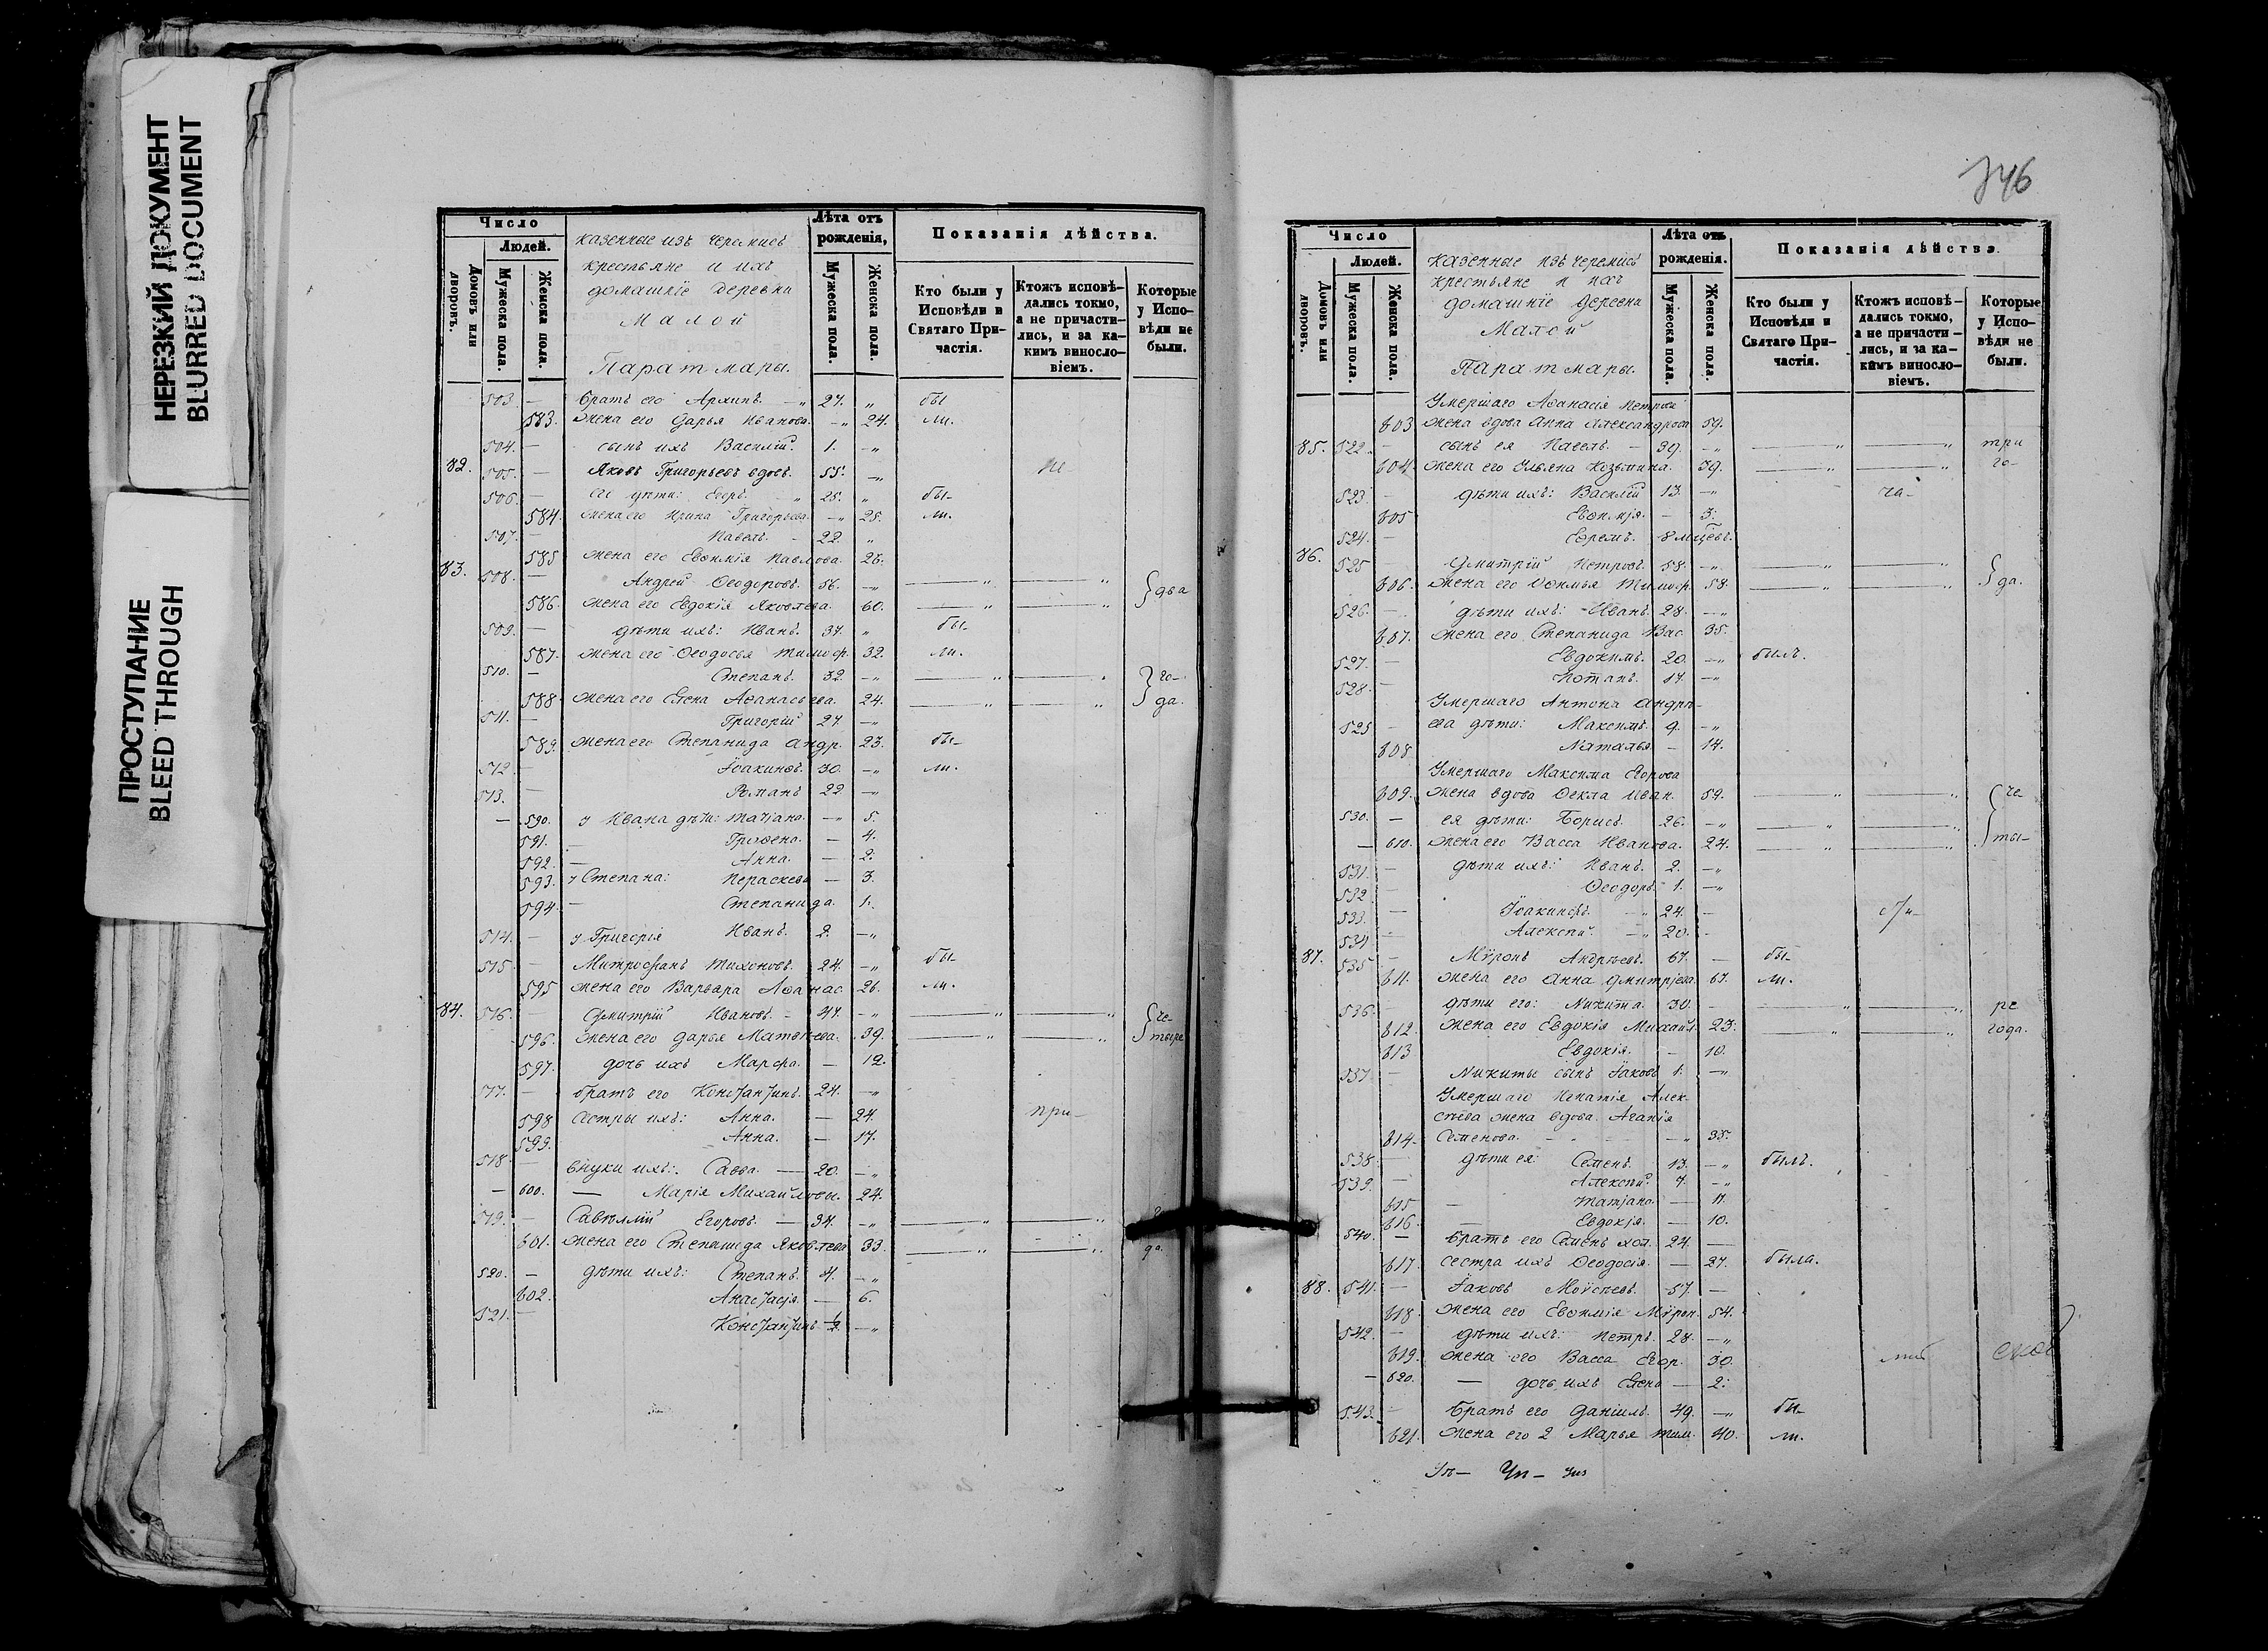 НЕРЕЗКИЙ ДОКУМЕНТ
BLURRED DOCUMENT
ПРОСТУПАНИЕ
BLEED THROUGH
Число
Людей.
Домовъ или дворовъ.
Мужеска пола.
Женска пола.
казенные изъ черемисъ
крестьяне и ихъ
домашніе деревни
Малой
Паратмары.
Лѣта отъ рожденія,
Мужеска пола.
Женска пола.
Показанія дѣйства.
Кто были у Исповѣди и Святаго При-частія.
Ктожъ исповѣ-дались токмо, а не причасти-лись, и за ка-кимъ виносло-віемъ.
Которые у Испо-вѣди не были.
503. — братъ его Архипъ. — „ 27. „ бы
583. жена его Дарья Иванова. — „ 24. ли.
504. — сынъ ихъ Василій. 1. — „
82. 505. — Яковъ Григорьевъ вдовъ. 55. — „ не
506. — его дѣти: Егоръ. — „ 25. „ бы-
584. жена его Ирина Григорьева. — „ 25. ли.
507. — Павелъ. — 22. „
585 жена его Евѳимія Павлова. 23.
83. 508. — Андрей Ѳеодоровъ. 56. — „ — „ — „ два
586. жена его Евдокія Яковлева. 60. — „ — „
509. — дѣти ихъ: Иванъ. 37. „ бы-
587. жена его Ѳеодосья Тимоѳ. 32. ли.
510. — Степанъ. 32. — „ — „ — „ го-
588. жена его Елена Аѳанасьева. 24. — „ — „ да.
511. — Григорій 27. — „
589. жена его Степанида Андр. 23. бы-
512. — Іоакимъ. 30. — „ ли.
513. — Романъ 22. — „
— 590. у Ивана дѣти: Татіана. — „ 5.
591. — 4.
592. — Анна. — 2.
593. у Степана: Пераскева — 3.
594. — Степанида. 1.
514. — у Григорія Иванъ. 2. — „
515 — Митрофанъ Тихоновъ. 24. — „ бы-
595 жена его Варвара Аѳанас. 26. ли.
84. 516. — Дмитрій Ивановъ. — 47. — „ — „ — „ че-
596. жена его Дарья Матвѣева. 39. — „ — „ тыре
597. дочь ихъ Марфа. — 12.
517. — братъ его Константинъ. 24. — „
598 сестры ихъ: Анна. — 24. при-
599. Анна. — 17.
518. — внуки ихъ: Савва. — 20. — „
— 600. — Марія Михайлова. 24.
519. — Савеллій Егоровъ. — 34. — „ — „ — „
601. жена его Степанида Яковлева 33. — „ — „ да.
520. — дѣти ихъ: Степанъ. 4. — „
602. Анастасія. — 6.
521. — Константинъ ½ — „
346
Число
Людей.
Домовъ или дворовъ.
Мужеска пола.
Женска пола.
казенные изъ черемисъ
крестьяне и ихъ
домашніе деревни
Малой
Паратмары.
Лѣта отъ рожденія.
Мужеска пола.
Женска пола.
Показанія дѣйства.
Кто были у Исповѣди и Святаго При-частія.
Ктожъ исповѣ-дались токмо, а не причасти-лись, и за ка-кимъ виносло-віемъ.
Которые у Испо-вѣди не были.
Умершаго Аѳанасія Петрова
603 жена вдова Анна Александрова 59.
85. 522. — сынъ ея Павелъ. — 39. — „ — „ — „ три
604. жена его Ульяна Козьмина. 39. — „ — „ го-
523. — дѣти ихъ: Василій 13. — „ ча-
605 Евѳимія. — 3.
524. — Ефремъ. 8 мцевъ.
86. 525 Дмитрій Петровъ. 58. — „ — „ — „
606. жена его Ѳекла Тимоѳ. 58. — „ — „ да.
526. — дѣти ихъ: Иванъ. 28. — „
607. жена его Степанида Вас. 35.
527. — Евдокимъ. 20. — „ былъ.
528. — Потапъ. 17. — „
Умершаго Антона Андрѣ-
529 — ева дѣти: Максимъ. 9. — „
608 Наталья — 14.
Умершаго Максима Егорова
609. жена вдова Ѳекла Иван. 59. — „ — „ че-
530. — ея дѣти: Борисъ. 26. — „ — „ — „
— 610. жена его Васса Иванова. 24. — „ — „ ты-
531. — дѣти ихъ: Иванъ. 2. — „
532. — Ѳеодоръ. 1. — „
533. — Іоакимъ. — „ 24. —
534. — Алексѣй. — „ 20. —
87. 535 — Миронъ Андреевъ. 67. — бы-
611. жена его Анна Дмитріева. 67. ли.
536. дѣти его: Никита. 30. — — „ — „ ре
612. жена его Евдокія Михайл. 23. — „ — „ года.
613 Евдокія. — 10.
537 — Никиты сынъ Іаковъ 1. — „
Умершаго Игнатія Алек-
сѣева жена вдова Агапія
614. Семенова. — „ 35.
538. — дѣти ея: Семенъ. 13. — „ былъ.
539. — Алексѣй. 7. — „
615 — Татіана. — 17.
616. — Евдокія. — 10.
540. — братъ его Семенъ хол. 24. —
617. сестра ихъ Ѳеодосія. — 27. была.
88. 541. — Іаковъ Моисеевъ. 57. —
618. жена его Евѳимія Мирон. 54.
542. — дѣти ихъ: Петръ. 28. — „
619. жена его Васса Егор. 30.
— 620. — дочь ихъ Елена — 2.
543. — братъ его Даніилъ. 49. — „ бы-
621. жена его 2 Марья Тим. 40. ли.